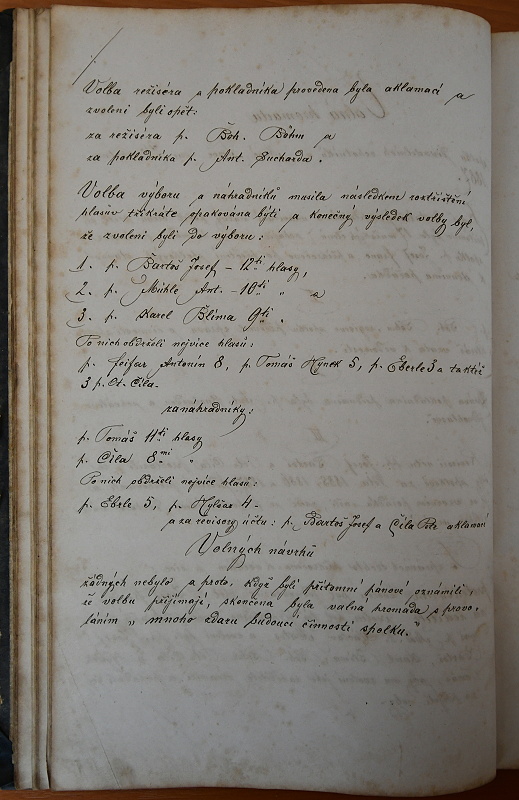 Volba režiséra a pokladníka provedena byla aklamací a
zvoleni byli opět:
za režiséra p. Boh. Böhm a
za pokladníka p. Ant. Sucharda.
Volba výboru a náhradníků musila následkem roztříštění
hlasův třikráte opakována býti a konečný výsledek volby byl,
že zvoleni byli do výboru:
1. p. Bartoš Josef – 12ti hlasy,
2. p. Mühle Ant. – 10ti " a
3. p. Karel Šlima 9ti ".
Po nich obdrželi nejvíce hlasů:
p. Feifar Antonín 8, p. Tomáš Hynek 5, p. Eberle 3 a taktéž
3 p. Ot. Číla.
za náhradníky:
p. Tomáš 11ti hlasy
p. Číla 8mi "
Po nich obdrželi nejvíce hlasů:
p. Ebrle 5, p. 4 –
a za revisory účtu: p. Bartoš Josef a Číla Petr aklamací
Volných návrhů
žádných nebylo a proto, když byli přítomní pánové oznámili,
že volbu přijímají, skončena byla valná hromada s provo-
láním „mnoho zdaru budoucí činnosti spolku."